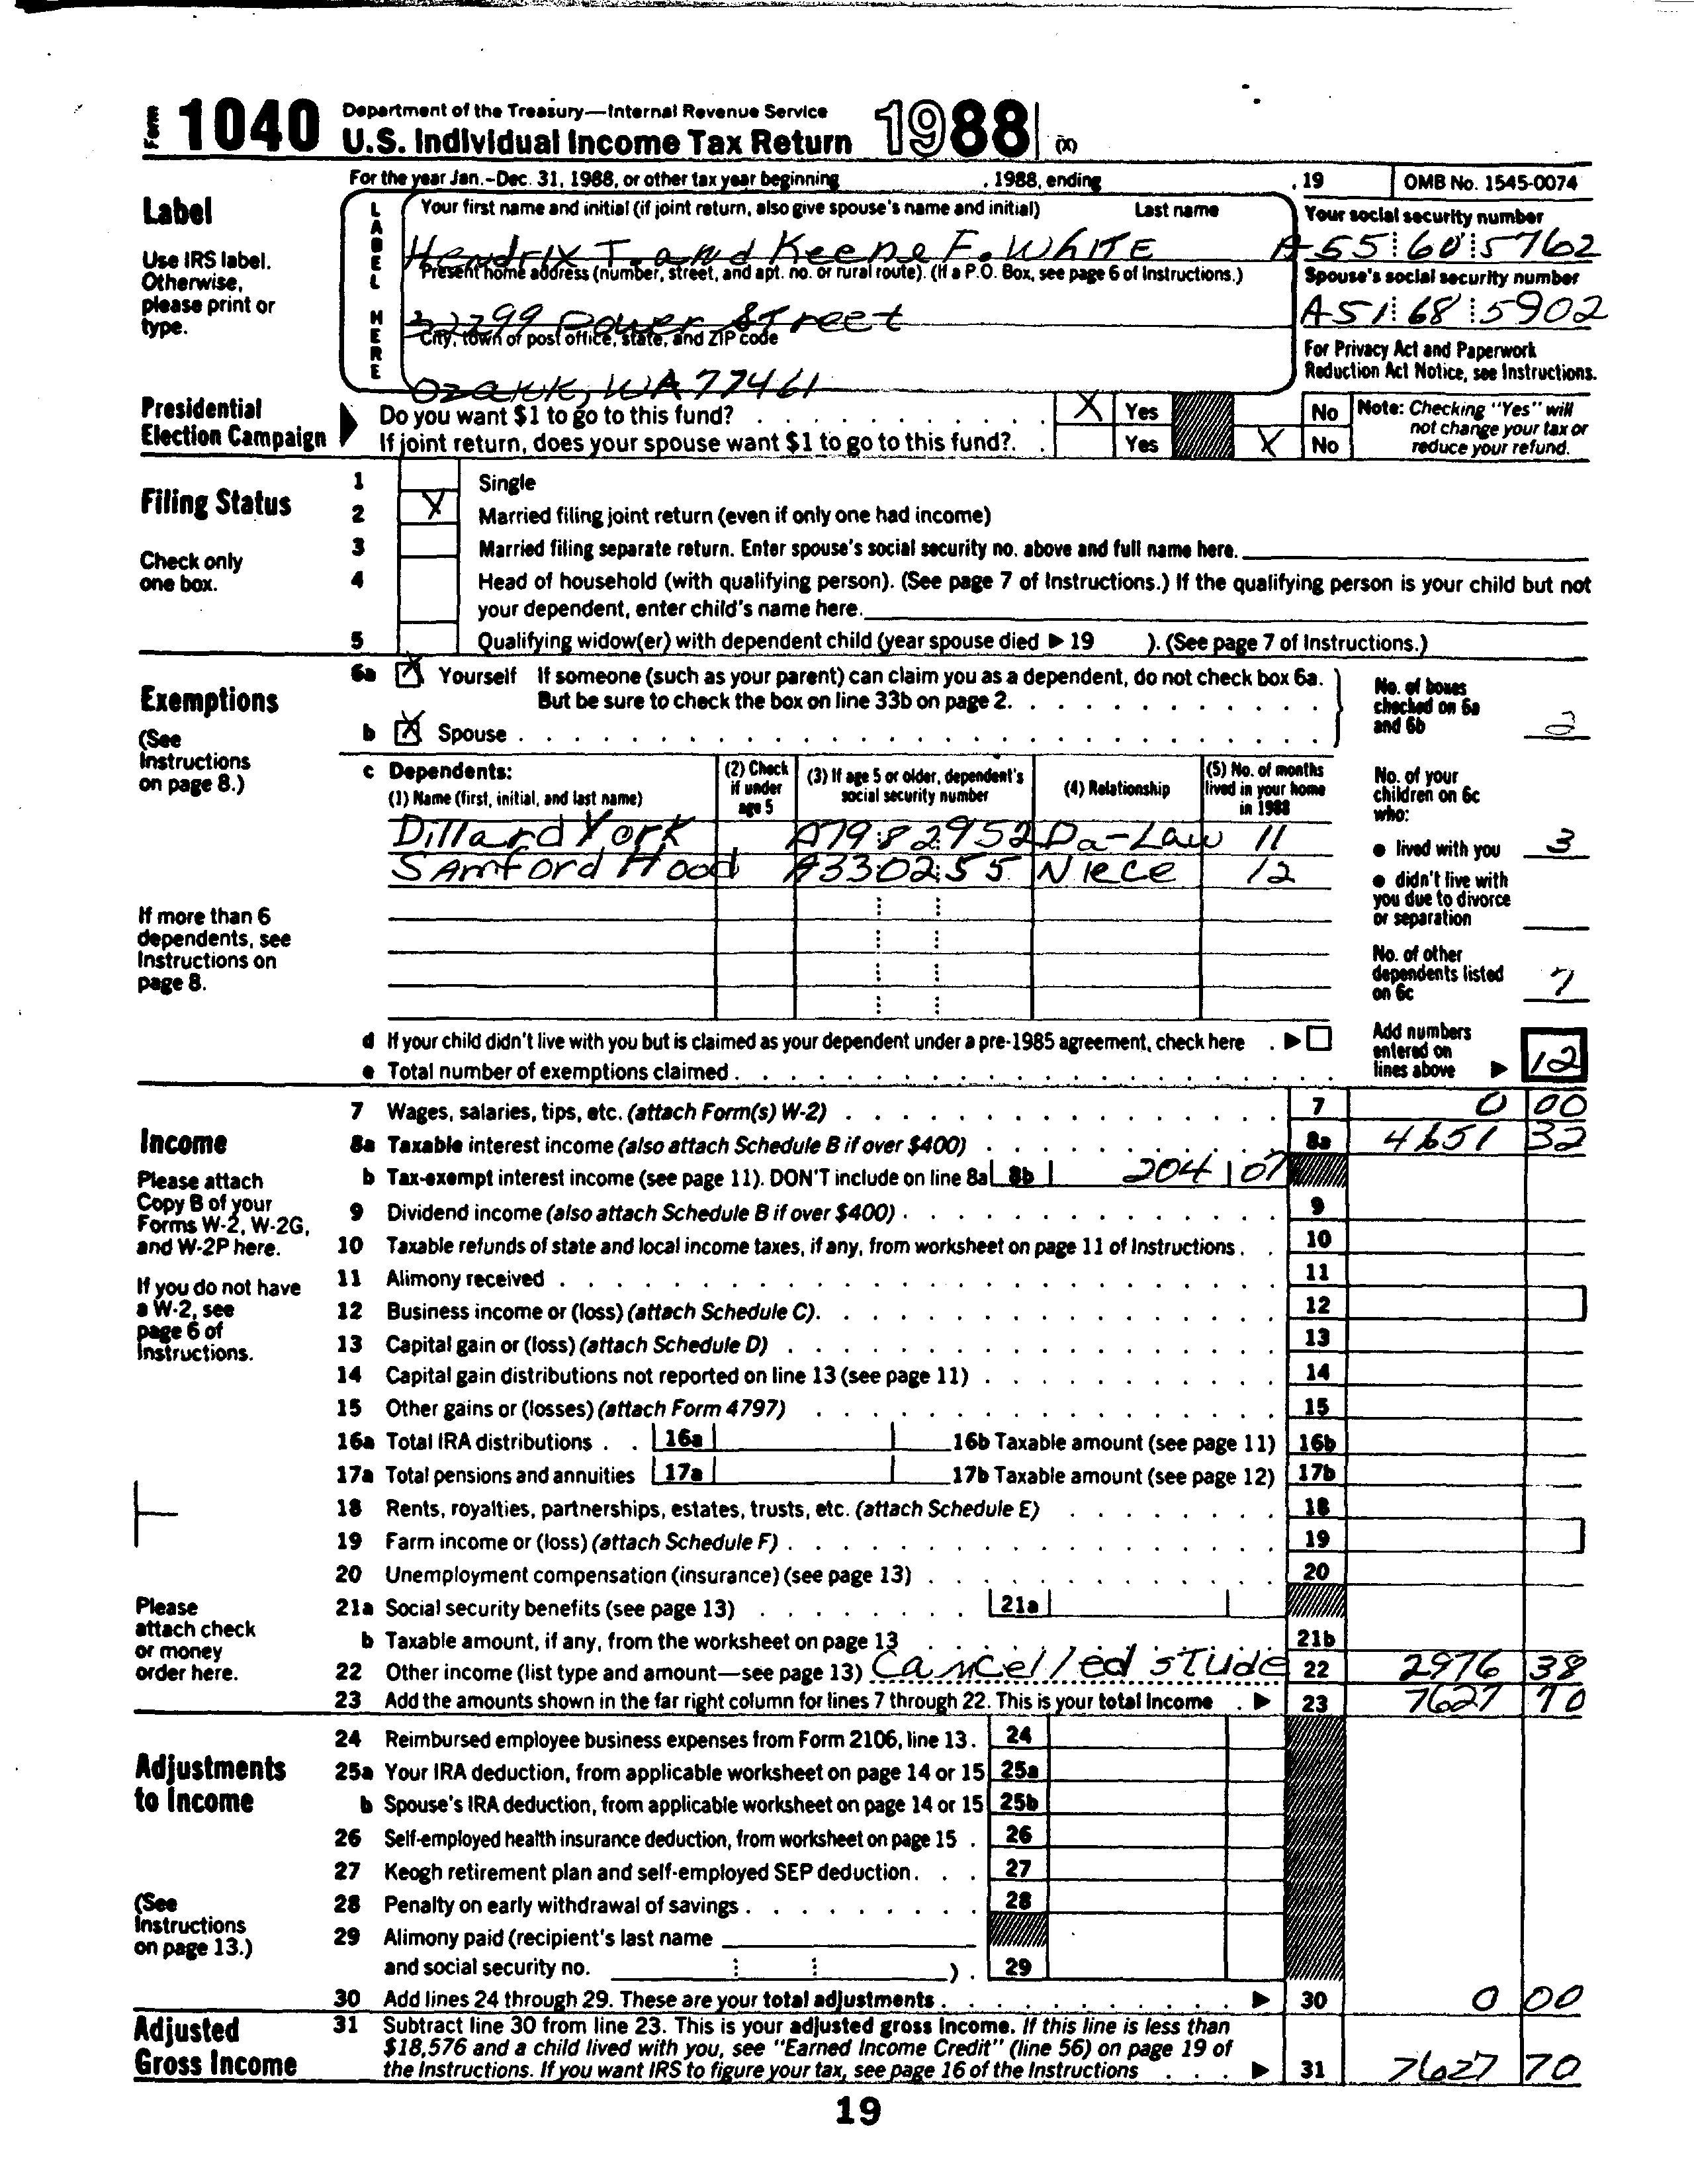 Form 1040 Department of the Treasury—Internal Revenue Service
U.S. Individual Income Tax Return 1988 (X)
For the year Jan.-Dec. 31, 1988, or other tax year beginning , 1988, ending , 19 OMB No. 1545-0074
Label
Use IRS label. Otherwise, please print or type.
LABEL HERE
Your first name and initial (if joint return, also give spouse's name and initial) Last name
Hendrix T. and Keene F. White
Your social security number
A55 60 5762
Present home address (number, street, and apt. no. or rural route). (If a P.O. Box, see page 6 of Instructions.)
32299 Power Street
Spouse's social security number
A51 68 5902
City, town or post office, state, and ZIP code
Ozark, WA 77461
For Privacy Act and Paperwork Reduction Act Notice, see Instructions.
Presidential Election Campaign
Do you want $1 to go to this fund? X Yes No
If joint return, does your spouse want $1 to go to this fund?. Yes X No
Note: Checking "Yes" will not change your tax or reduce your refund.
Filing Status
Check only one box.
1 Single
2 X Married filing joint return (even if only one had income)
3 Married filing separate return. Enter spouse's social security no. above and full name here.
4 Head of household (with qualifying person). (See page 7 of Instructions.) If the qualifying person is your child but not
your dependent, enter child's name here.
5 Qualifying widow(er) with dependent child (year spouse died ▶ 19 ). (See page 7 of Instructions.)
Exemptions
(See Instructions on page 8.)
6a X Yourself If someone (such as your parent) can claim you as a dependent, do not check box 6a.
But be sure to check the box on line 33b on page 2.
b X Spouse
No. of boxes checked on 6a and 6b 2
c Dependents:
(1) Name (first, initial, and last name)
(2) Check if under age 5
(3) If age 5 or older, dependent's social security number
(4) Relationship
(5) No. of months lived in your home in 1988
Dillard York A79 82952 Da-Law 11
Samford Hood A330255 Niece 12
If more than 6 dependents, see Instructions on page 8.
No. of your children on 6c who:
● lived with you 3
● didn't live with you due to divorce or separation
No. of other dependents listed on 6c 7
d If your child didn't live with you but is claimed as your dependent under a pre-1985 agreement, check here ▶
e Total number of exemptions claimed
Add numbers entered on lines above ▶ 12
Income
Please attach Copy B of your Forms W-2, W-2G, and W-2P here.
If you do not have a W-2, see page 6 of Instructions.
Please attach check or money order here.
7 Wages, salaries, tips, etc. (attach Form(s) W-2) 7 0 00
8a Taxable interest income (also attach Schedule B if over $400) 8a 4651 32
b Tax-exempt interest income (see page 11). DON'T include on line 8a 8b 204 07
9 Dividend income (also attach Schedule B if over $400) 9
10 Taxable refunds of state and local income taxes, if any, from worksheet on page 11 of Instructions 10
11 Alimony received 11
12 Business income or (loss) (attach Schedule C). 12
13 Capital gain or (loss) (attach Schedule D) 13
14 Capital gain distributions not reported on line 13 (see page 11) 14
15 Other gains or (losses) (attach Form 4797) 15
16a Total IRA distributions 16a 16b Taxable amount (see page 11) 16b
17a Total pensions and annuities 17a 17b Taxable amount (see page 12) 17b
18 Rents, royalties, partnerships, estates, trusts, etc. (attach Schedule E) 18
19 Farm income or (loss) (attach Schedule F) 19
20 Unemployment compensation (insurance) (see page 13) 20
21a Social security benefits (see page 13) 21a
b Taxable amount, if any, from the worksheet on page 13 21b
22 Other income (list type and amount—see page 13) Cancelled stude 22 2976 38
23 Add the amounts shown in the far right column for lines 7 through 22. This is your total income ▶ 23 7627 70
Adjustments to Income
(See Instructions on page 13.)
24 Reimbursed employee business expenses from Form 2106, line 13. 24
25a Your IRA deduction, from applicable worksheet on page 14 or 15 25a
b Spouse's IRA deduction, from applicable worksheet on page 14 or 15 25b
26 Self-employed health insurance deduction, from worksheet on page 15 26
27 Keogh retirement plan and self-employed SEP deduction 27
28 Penalty on early withdrawal of savings 28
29 Alimony paid (recipient's last name
and social security no. ) 29
30 Add lines 24 through 29. These are your total adjustments ▶ 30 0 00
Adjusted Gross Income
31 Subtract line 30 from line 23. This is your adjusted gross income. If this line is less than
$18,576 and a child lived with you, see "Earned Income Credit" (line 56) on page 19 of
the Instructions. If you want IRS to figure your tax, see page 16 of the Instructions ▶ 31 7627 70
19